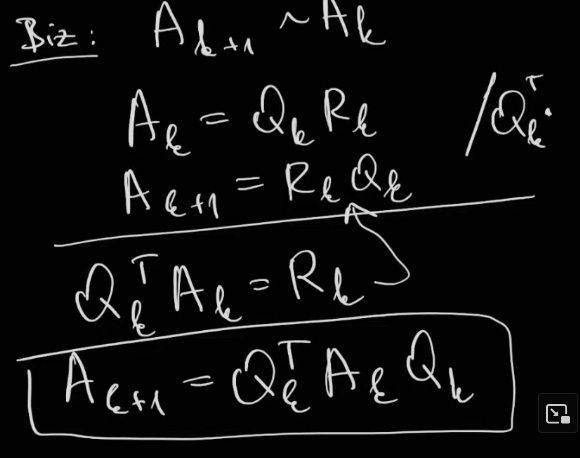 Biz: A_{k+1} ~ A_k
A_k = Q_k R_k /Q_k^T·
A_{k+1} = R_k Q_k
Q_k^T A_k = R_k
A_{k+1} = Q_k^T A_k Q_k